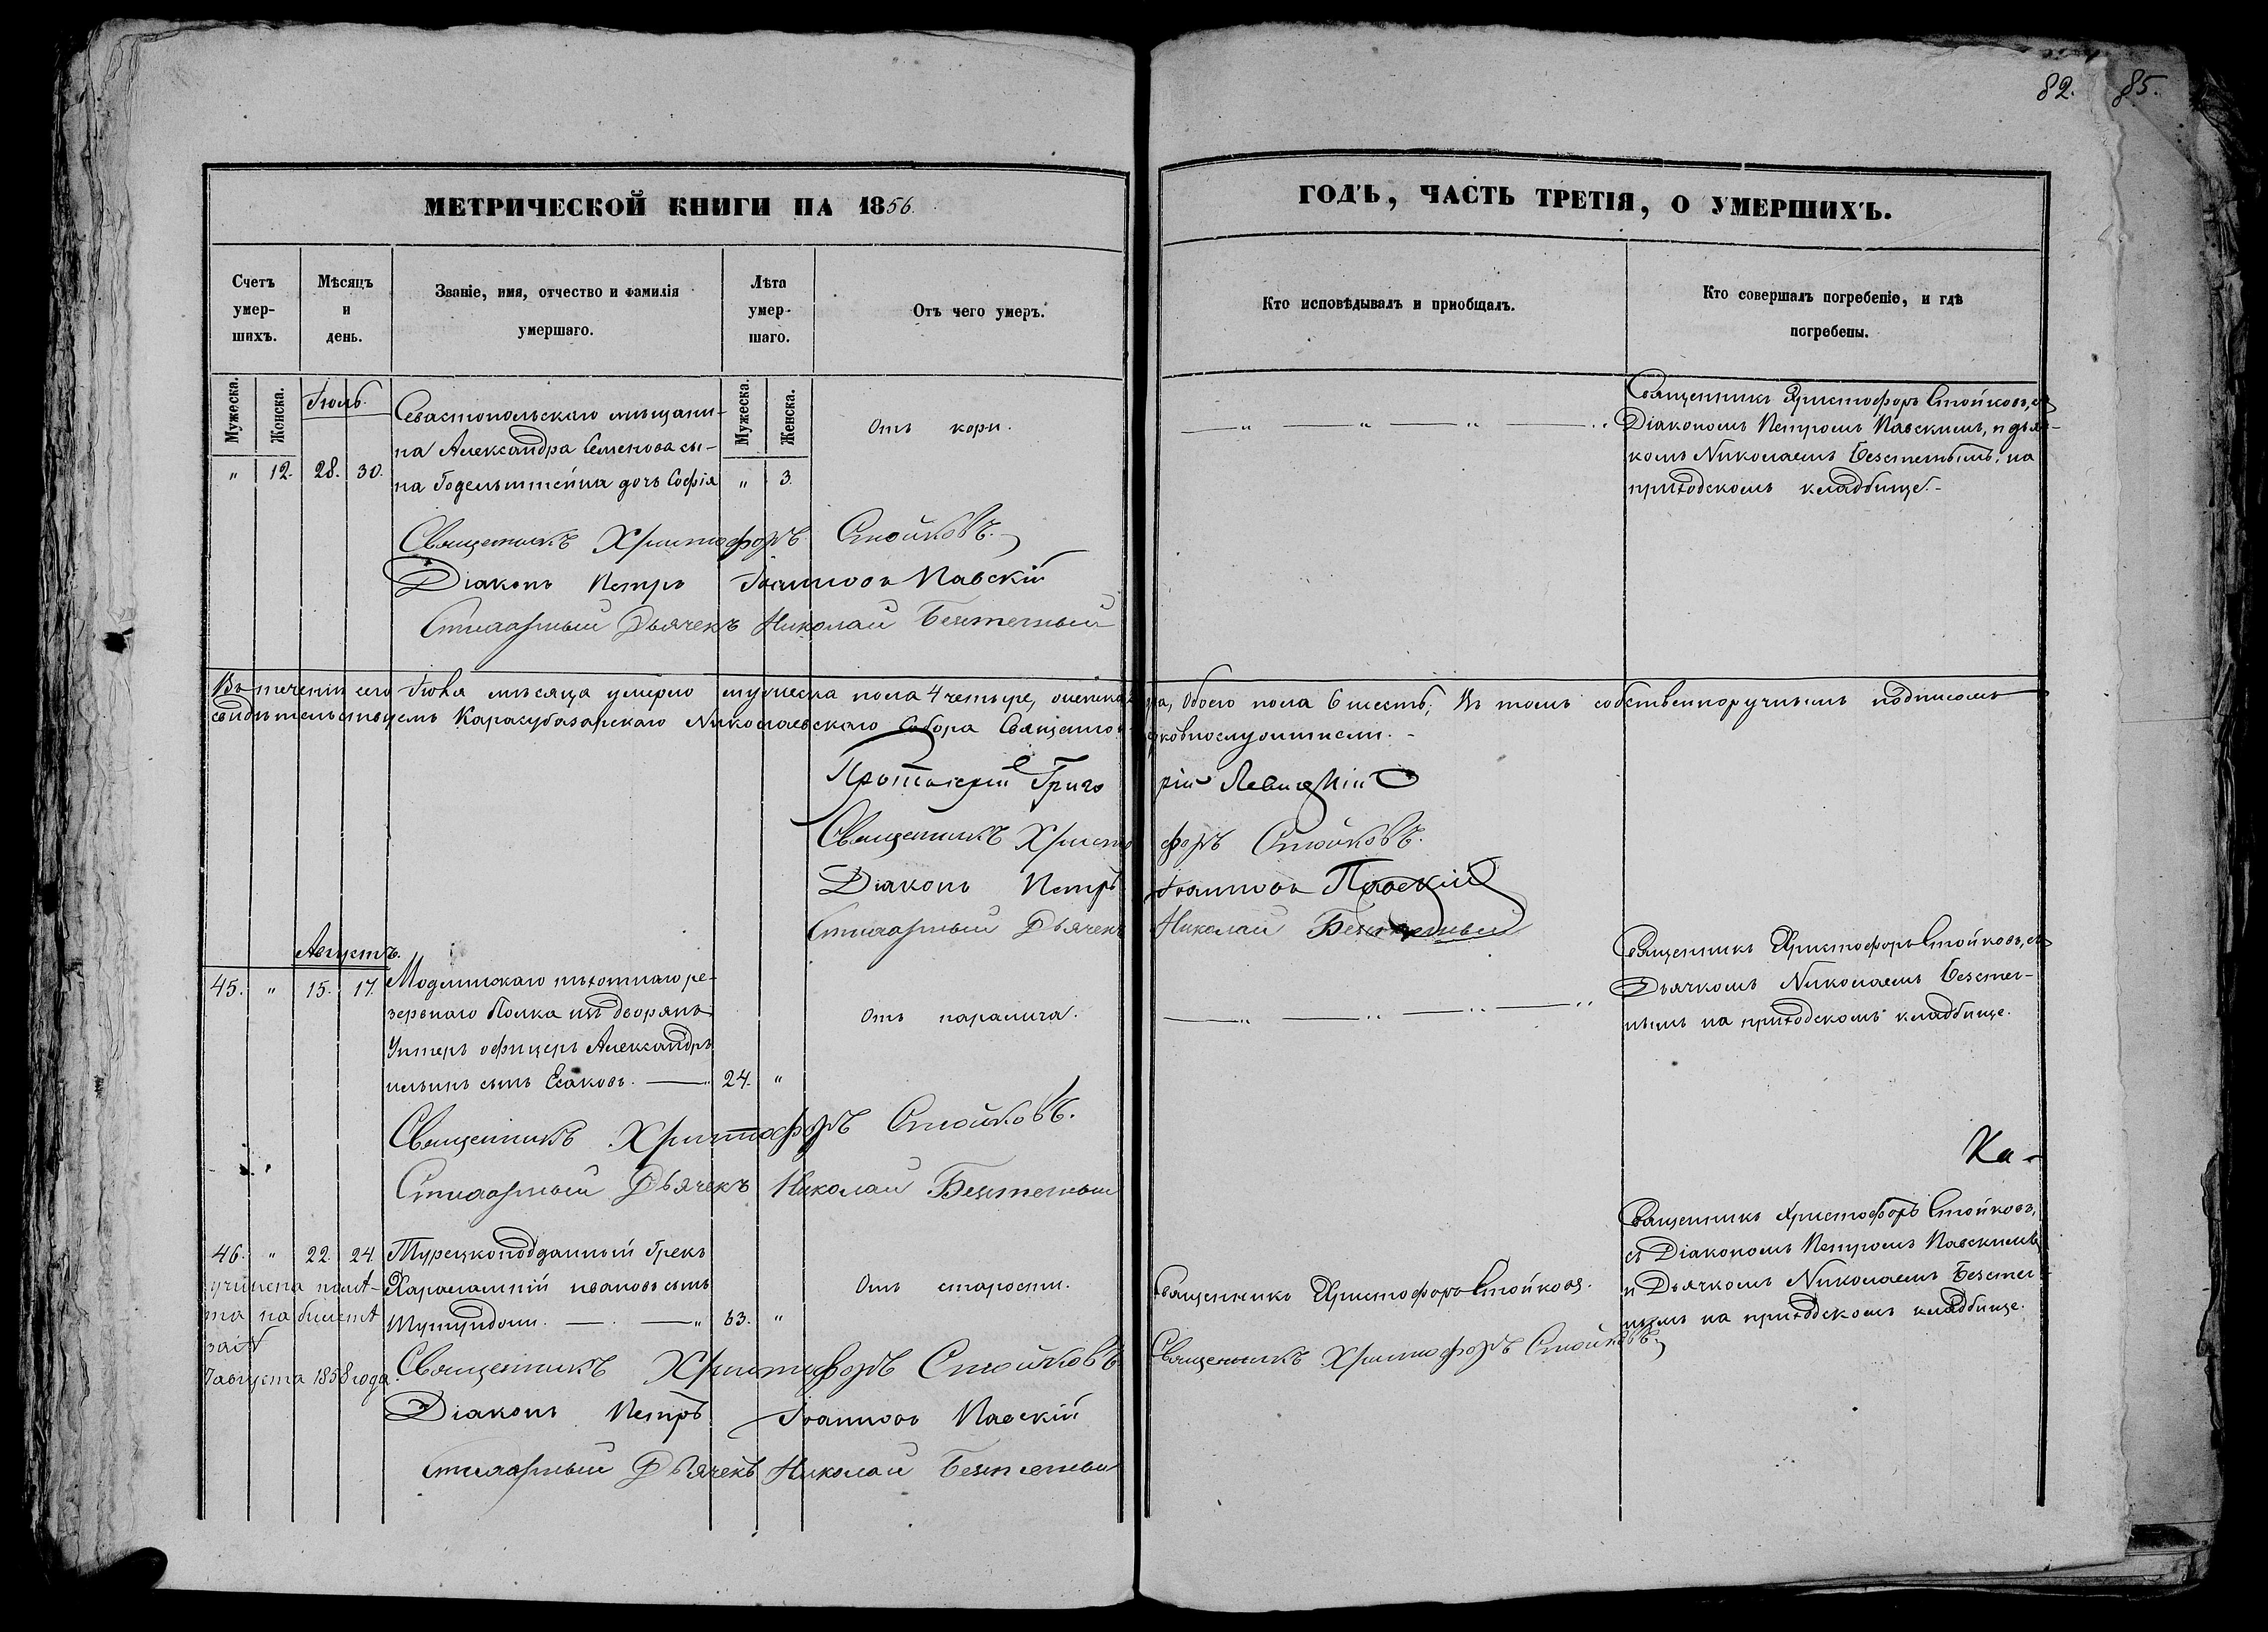 82. 85.
МЕТРИЧЕСКОЙ КНИГИ НА 1856.
ГОДЪ, ЧАСТЬ ТРЕТІЯ, О УМЕРШИХЪ.
Счетъ умер-шихъ.
Мѣсяцъ и день.
Званіе, имя, отчество и фамилія умершаго.
Лѣта умер-шаго.
Отъ чего умеръ.
Кто исповѣдывалъ и пріобщалъ.
Кто совершалъ погребеніе, и гдѣ погребены.
Мужеска. Женска.
Мужеска. Женска.
Іюль.
" 12. 28. 30.
Севастопольскаго мѣщани-
на Александра Семенова сы-
на Годельштейна дочь Софія " 3.
Отъ кори.
Священникъ Христофоръ Стойковъ, съ
Діакономъ Петромъ Павскимъ, и дьяч-
комъ Николаемъ Безсметнымъ, на
приходскомъ кладбище.
Священникъ Христофоръ Стойковъ.
Діаконъ Петръ Іоанновъ Павскій
Стихарный Дьячекъ Николай
Въ теченіи сего Іюля мѣсяца умерло мужеска пола 4 четыре, женска 2 два, Обоего пола 6 шесть; Въ томъ собственноручнымъ подписомъ
свидѣтельствуемъ Карасубазарскаго Николаевскаго Собора Священно-церковнослужители.
Протоіерей Григорій Левицкій
Священникъ Христофоръ Стойковъ.
Діаконъ Петръ Іоанновъ Павскій
Стихарный Дьячекъ Николай
Августъ.
45. " 15. 17.
Модлинскаго пѣхотнаго ре-
зервнаго Полка изъ дворянъ
Унтеръ офицеръ Александръ
ильинъ сынъ Есаковъ. 24. "
Отъ паралича.
Священникъ Христофоръ Стойковъ, съ
Дьячкомъ Николаемъ
нымъ на приходскомъ кладбище.
Священникъ Христофоръ Стойковъ.
Стихарный Дьячекъ Николай
Ка-
46. " 22. 24.
Турецкоподданный Грекъ
Харалампій ивановъ сынъ
63. "
Отъ старости.
Священникъ Христофоръ Стойковъ.
Священникъ Христофоръ Стойковъ,
съ Діакономъ Петромъ Павскимъ
и Дьячкомъ Николаемъ
нымъ на приходскомъ кладбище.
учинена помѣ-
та на билетѣ
за №
7 августа 1858 года.
Священникъ Христофоръ Стойковъ
Священникъ Христофоръ Стойковъ.
Діаконъ Петръ Іоанновъ Павскій
Стихарный Дьячекъ Николай